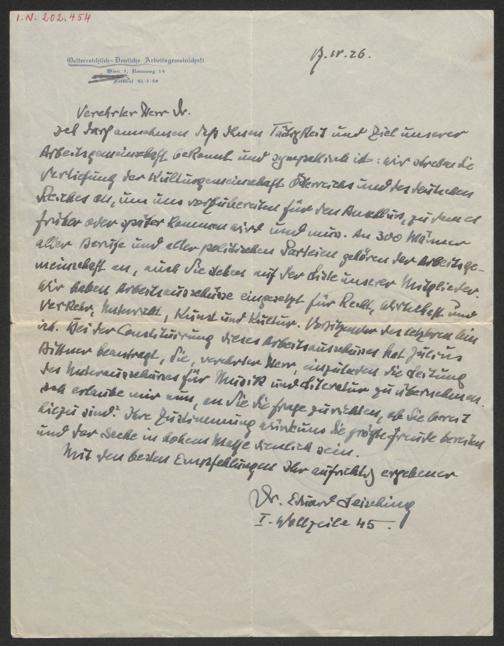 I.N. 202.454
Oesterreichisch-Deutsche Arbeitsgemeinschaft
Wien I,
17.IV.26.
Verehrter Herr Dr.
Ich darf annehmen daß Ihnen Tätigkeit und Ziel unserer
Arbeitsgemeinschaft bekannt und sympathisch ist: wir streben die
Vertiefung der Kulturgemeinschaft Österreichs und des deutschen
Reiches an, um uns vorzubereiten für den Anschluß, zu dem es
früher oder später kommen wird und muß. An 300 Männer
aller Berufe und aller politischen Parteien gehören der Arbeitsge-
meinschaft an, auch Sie stehen auf der Liste unserer Mitglieder.
Wir haben Arbeitsausschüsse eingesetzt für Recht, Wirtschaft und
Verkehr, Unterricht, Kunst und Kultur. Vorsitzender des letzteren bin
ich. Bei der Constituirung dieses Arbeitsausschusses hat Julius
Bittner beantragt, Sie, verehrter Herr, einzuladen die Leitung
des Unterausschusses für Musik und Literatur zu übernehmen.
Ich erlaube mir nun, an Sie die Frage zu richten, ob Sie bereit
hiezu sind. Ihre Zustimmung würde uns die größte Freude bereiten
und der Sache in hohem Maße dienlich sein.
Mit den besten Empfehlungen Ihr aufrichtig ergebener
Dr. Eduard Leisching
I. Wollzeile 45.